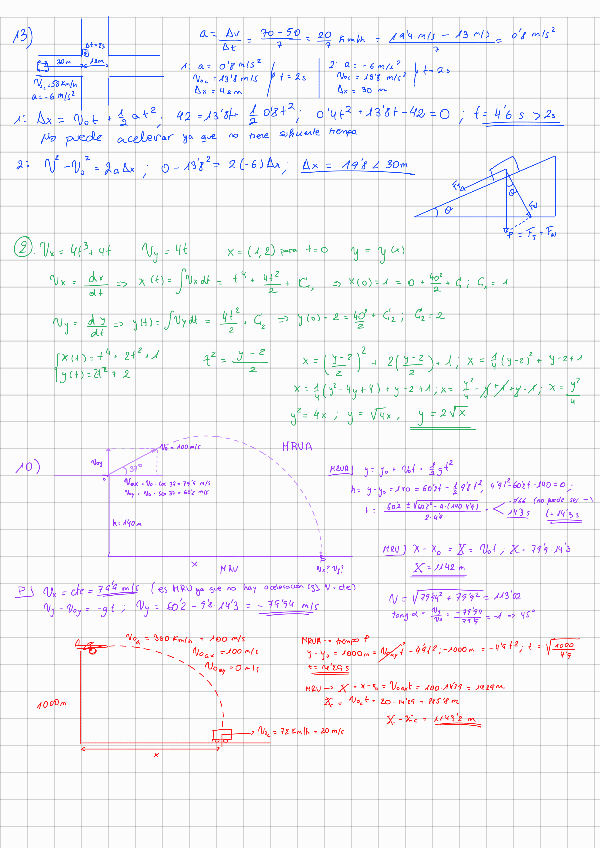 13)
Δt=2s
20m
12m
V₀=50 Km/h
a=-6 m/s²
a = Δv/Δt = 70-50/7 = 20/7 Km/h = 19'4 m/s - 13 m/s / 7 = 0'8 m/s²
1: a = 0'8 m/s²
V₀ₓ = 13'8 m/s
Δx = 42 m
t = 2s
2: a = -6 m/s²
V₀ₓ = 13'8 m/s
Δx = 30 m
t = 2s
1: Δx = V₀t + 1/2 at²; 42 = 13'8t + 1/2 0'8t²; 0'4t² + 13'8t - 42 = 0; t = 4'6 s > 2s
No puede acelerar ya que no tiene suficiente tiempo
2: V² - V₀² = 2aΔx; 0 - 13'8² = 2(-6)Δx; Δx = 19'8 < 30m
θ
θ
2. Vx = 4t³ + 4t Vy = 4t x = (1,2) para t=0 y = y(x)
Vx = dx/dt ⇒ x(t) = ∫Vx dt = t⁴ + 4t²/2 + C₁ ⇒ x(0) = 1 = 0 + 40²/2 + C₁; C₁ = 1
Vy = dy/dt ⇒ y(t) = ∫Vy dt = 4t²/2 + C₂ ⇒ y(0) = 2 = 40²/2 + C₂; C₂ = 2
x(t) = t⁴ + 2t² + 1
y(t) = 2t² + 2
t² = y-2/2
x = (y-2/2)² + 2(y-2/2) + 1; x = 1/4(y-2)² + y-2+1
x = 1/4(y²-4y+4) + y-2+1; x = y²/4 - y+1+y-1; x = y²/4
y² = 4x; y = √4x, y = 2√x
10)
V₀y
V₀ = 100 m/s
37º
V₀x = V₀ · cos 37 = 79'9 m/s
V₀y = V₀ · sen 37 = 60'2 m/s
h = 140m
x
MRU
MRUA
Vx? Vy?
MRUA) y = y₀ + V₀t - 1/2 gt²
h = y-y₀ = 140 = 60'2t - 1/2 9'8t², 4'9t²-60'2t-140=0
t = 60'2 ± √60'2²-4·(140·4'9) / 2·4'9
(no puede ser -)
14'3 s
t=14'3 s
MRU) X - X₀ = X = V₀t, X = 79'9 · 14'3
X = 1142 m
P.) Vx = cte = 79'9 m/s (es MRU ya que no hay aceleración (g) V = cte)
Vy - V₀y = -gt; Vy = 60'2 - 9'8 · 14'3 = -79'94 m/s
V = √79'9² + 79'9² = 113'02
tang α = Vy/Vx = -79'94/79'9 = -1 ⇒ 45º
V₀a = 360 Km/h = 100 m/s
V₀ax = 100 m/s
V₀ay = 0 m/s
1000m
x
V₀c = 72 Km/h = 20 m/s
MRUA → tiempo ↑
y-y₀ = 1000m = V₀ayt - 4'9t²; -1000m = -4'9t²; t = √1000/4'9
t = 14'29 s
MRU → X = x-x₀ = V₀axt = 100·14'29 = 1429m
Xc = V₀ct = 20·14'29 = 285'8 m
X - Xc = 1143'2 m